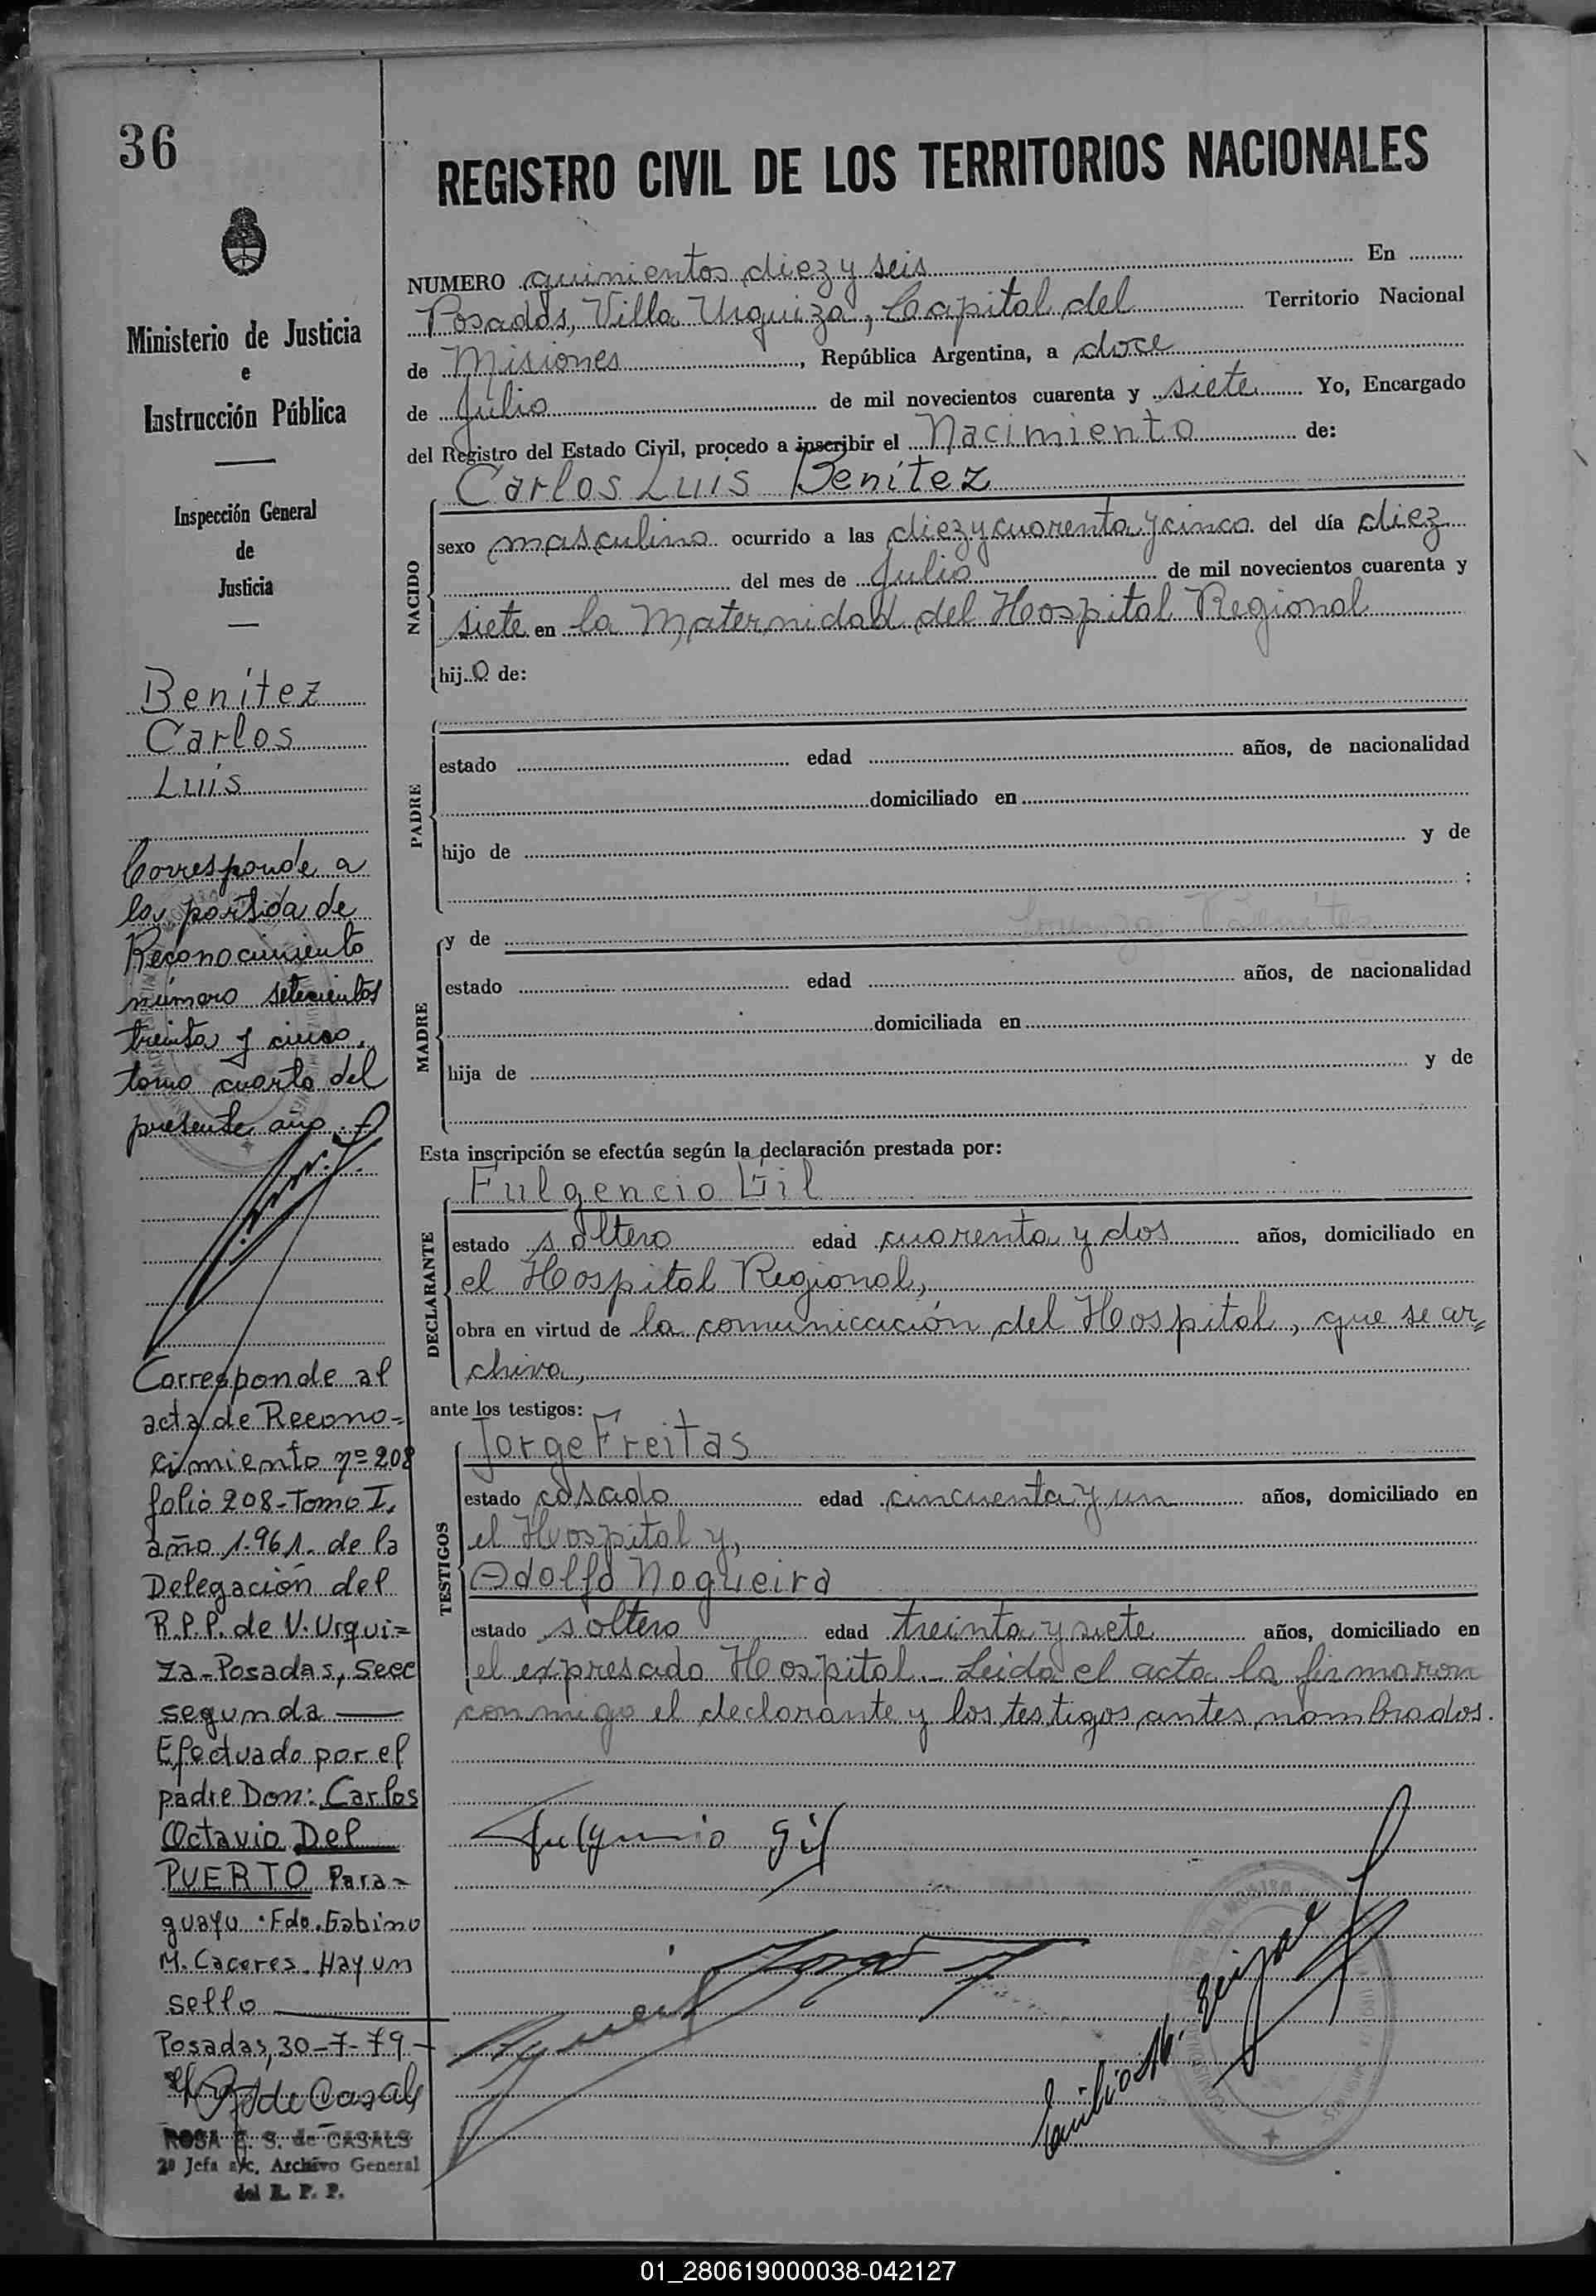 36
Ministerio de Justicia
e
Instrucción Pública
Inspección General
de
Justicia
Benítez
Carlos
Luis
Corresponde a
la partida de
Reconocimiento
número setecientos
treinta y cinco,
tomo cuarto del
presente año.
Corresponde al
acta de Recono=
cimiento nº 208
folio 208-Tomo I,
año 1.961. de la
Delegación del
R.P.P. de V. Urqui=
za-Posadas, Secc
segunda
Efectuado por el
padre Don: Carlos
Octavio Del
PUERTO Para-
guayo. Fdo. Gabino
M. Caceres. Hay un
sello
Posadas, 30-7-79-
de Casals
ROSA E. S. de CASALS
2ª Jefa a/c. Archivo General
del R. P. P.
REGISTRO CIVIL DE LOS TERRITORIOS NACIONALES
NUMERO quinientos diez y seis En
Posadas, Villa Urquiza, Capital del Territorio Nacional
de Misiones, República Argentina, a doce
de Julio de mil novecientos cuarenta y siete Yo, Encargado
del Registro del Estado Civil, procedo a inscribir el Nacimiento de:
Carlos Luis Benítez
NACIDO
sexo masculino ocurrido a las diez y cuarenta y cinco del día diez
del mes de Julio de mil novecientos cuarenta y
siete en la Maternidad del Hospital Regional
hijo de:
PADRE
estado edad años, de nacionalidad
domiciliado en
hijo de y de
;
MADRE
y de
estado edad años, de nacionalidad
domiciliada en
hija de y de
Esta inscripción se efectúa según la declaración prestada por:
Fulgencio Gil
DECLARANTE
estado soltero edad cuarenta y dos años, domiciliado en
el Hospital Regional,
obra en virtud de la comunicación del Hospital, que se ar=
chiva,
ante los testigos:
Jorge Freitas
TESTIGOS
estado casado edad cincuenta y un años, domiciliado en
el Hospital y,
Adolfo Nogueira
estado soltero edad treinta y siete años, domiciliado en
el expresado Hospital.- Leida el acta la firmaron
conmigo el declarante y los testigos antes nombrados.
Fulgencio Gil
Jorge F
Emilio M.
01_280619000038-042127